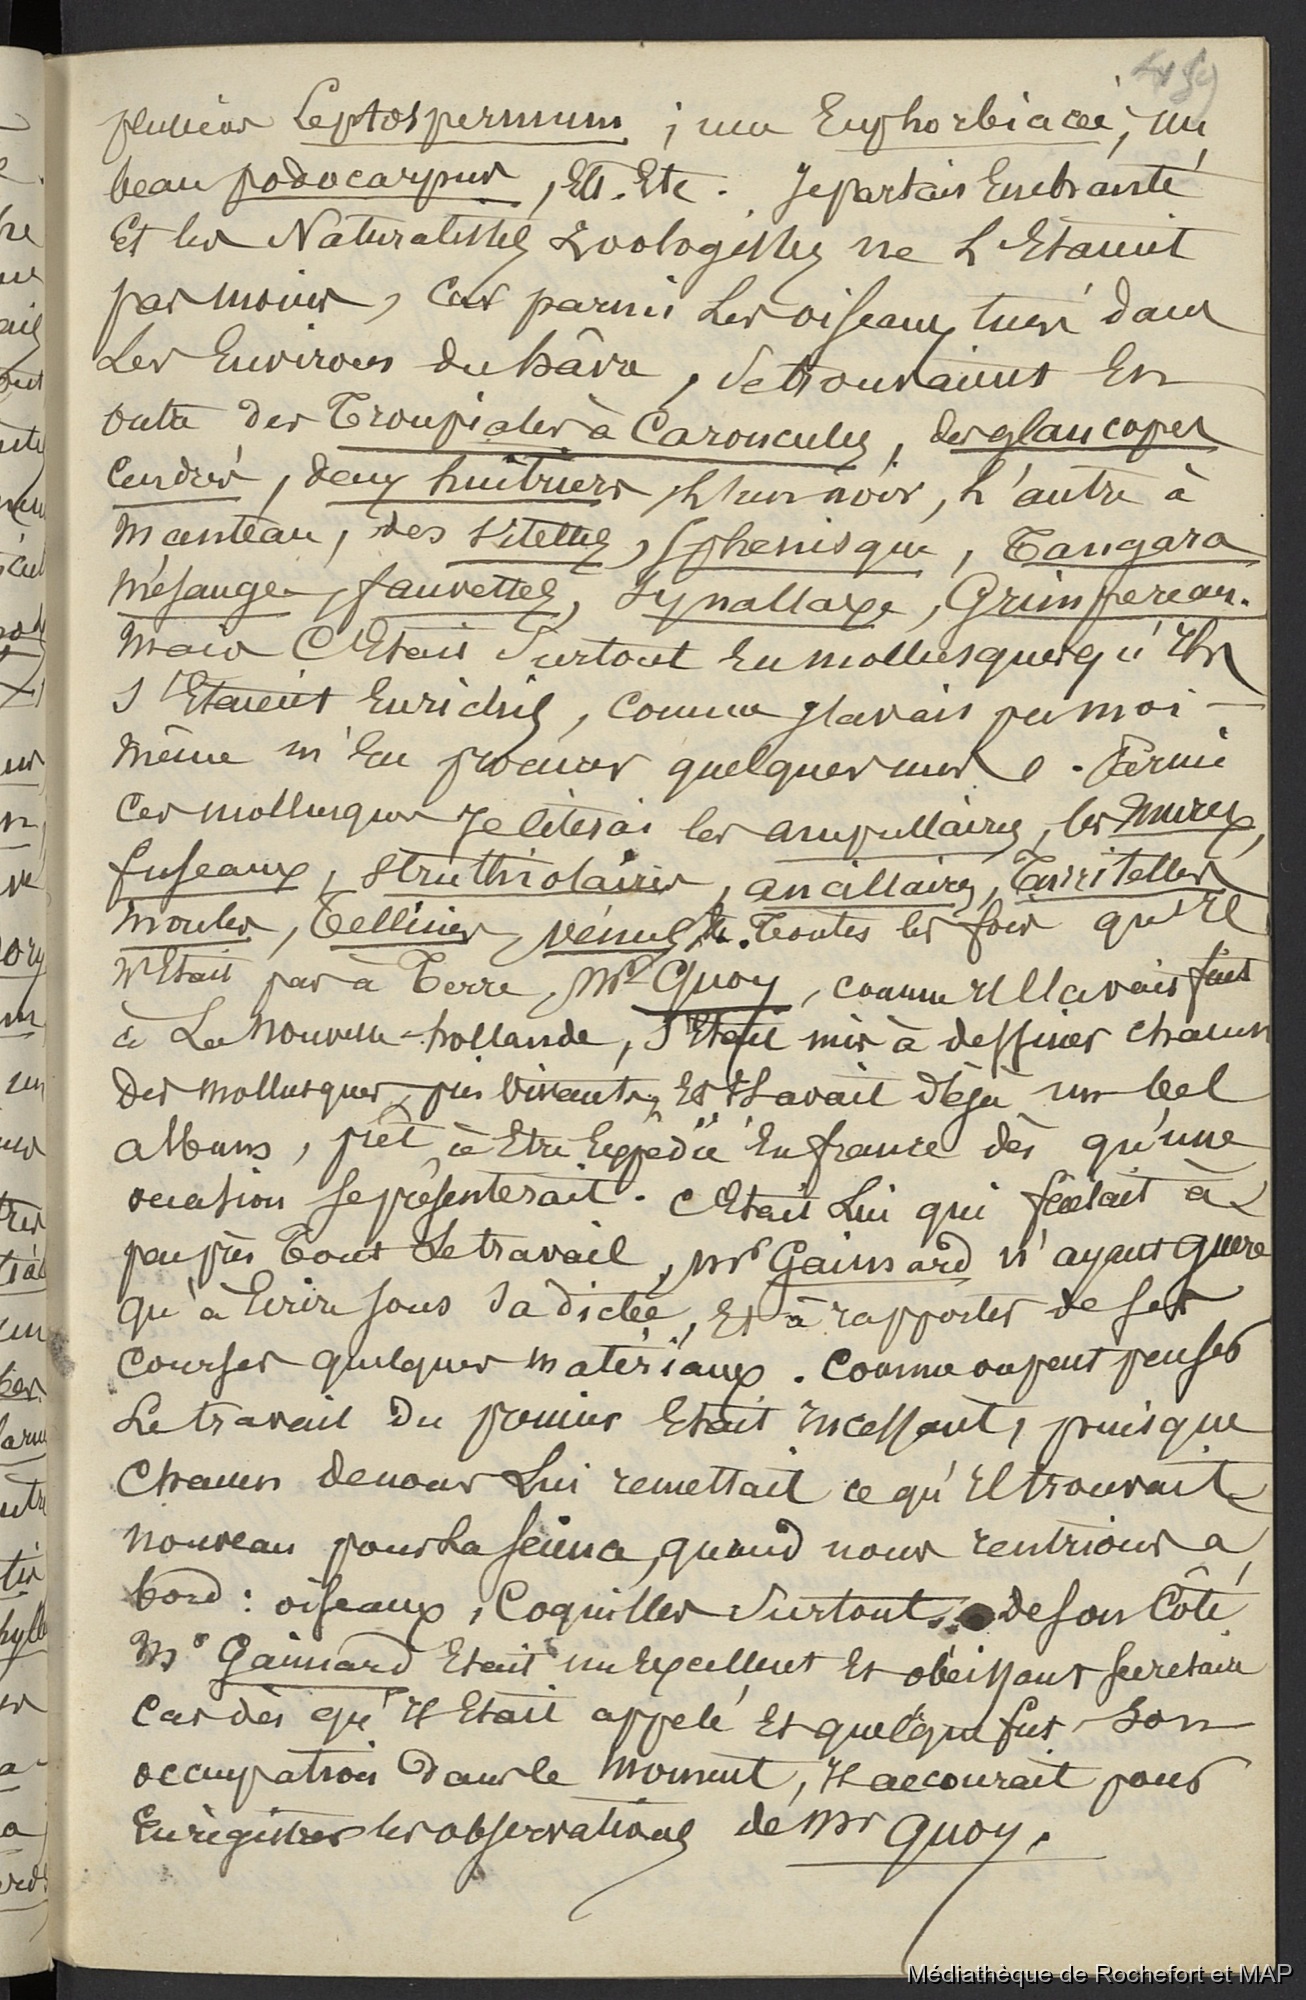 459
plusieurs Leptospermum ; une Euphorbiacée, un
beau podocarpus, Ett. Etc. Je partais Enchanté
Et les Naturalistes Zoologistes ne L'Etaient
pas moins, Car parmi Les oiseaux tués dans
Les Environs du hâvre, se trouvaient En
outre des Troupiales à Caroncules, des glaucopes
Cendrés, deux huîtriers, L'un noir, L'autre à
Manteau, des Sitelles, Sphenisque, Tangara
Mésange, fauvettes, Synallaxe, Grimpereau.
Mais C'Etait Surtout En mollusques qu'Ils
S'Etaient Enrichis, comme J'avais pu moi-
même m'En procurer quelques uns. Parmi
Ces mollusques Je Citerai les ampullaires, les Murex,
fuseaux, Struthiolaires, ancillaires, Turritelles
Moules, Tellines, vénus, Etc. Toutes les fois qu'Il
N'Etait pas à Terre, Mr Quoy, comme Il L'avait fait
à La Nouvelle-hollande, S'Etait mis à dessiner chacun
Des Mollusques, pris vivants, Et Il avait déjà un bel
album, prêt à Etre Expédié En france dès qu'une
occasion se présenterait. C'Etait Lui qui faisait à
peu près Tout Le travail, Mr Gaimard n'ayant guere
qu'à Ecrire sous sa dictée, Et à rapporter de ses
courses quelques matériaux. Comme on peut penser
Le travail du premier Etait Incessant, puisque
Chacun de nous Lui remettait ce qu'Il trouvait
Nouveau pour La Science, quand nous rentrions à
bord : oiseaux, Coquilles Surtout. De son Côté
Mr Gaimard Etait un Excellent Et obéissant secretaire
Car dès qu'Il Etait appelé Et quelque fut Son
occupation dans le Moment, Il accourait pour
Enrégistrer les observations de Mr Quoy.
Médiathèque de Rochefort et MAP